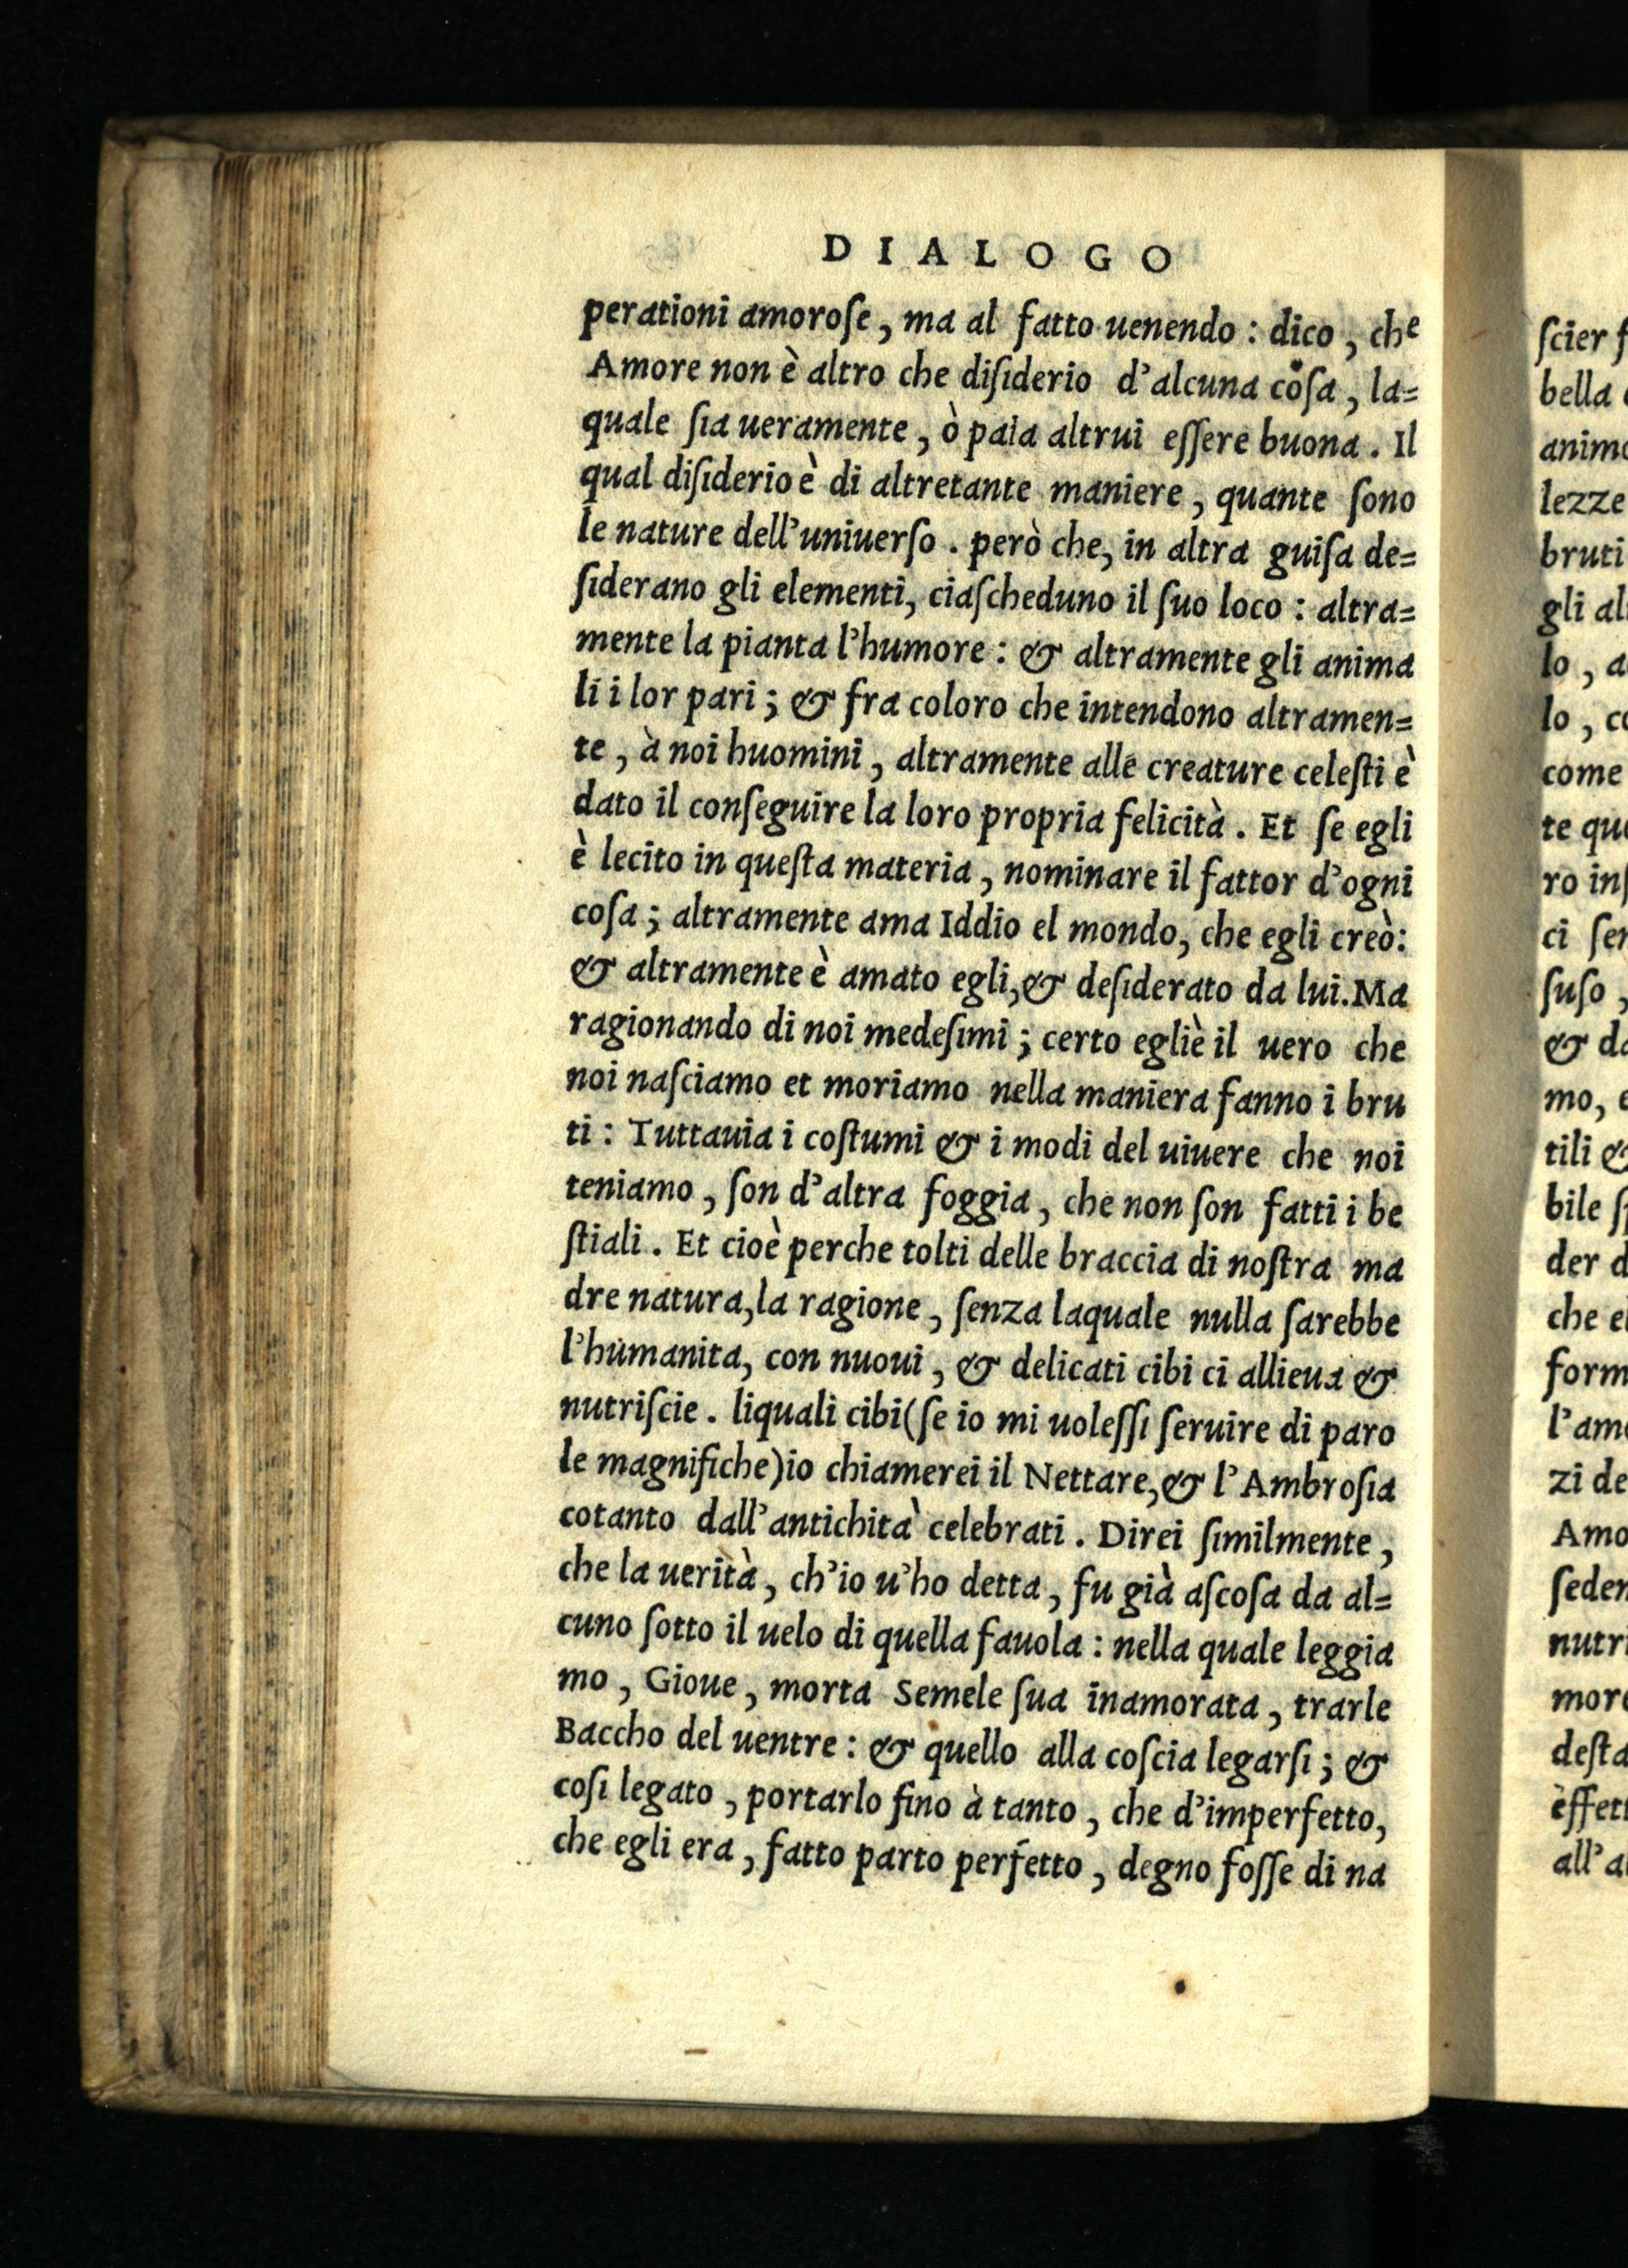 DIALOGO
perationi amoroſe, ma al fatto uenendo: dico, che
Amore non è altro che diſiderio d'alcuna coſa, la=
quale ſia ueramente, ò paia altrui eſſere buona. Il
qual diſiderio è di altretante maniere, quante ſono
le nature dell'uniuerſo. però che, in altra guiſa de=
ſiderano gli elementi, ciaſcheduno il ſuo loco: altra=
mente la pianta l'humore: & altramente gli anima
li i lor pari; & fra coloro che intendono altramen=
te, à noi huomini, altramente alle creature celeſti è
dato il conſeguire la loro propria felicità. Et ſe egli
è lecito in queſta materia, nominare il fattor d'ogni
coſa; altramente ama Iddio el mondo, che egli creò:
& altramente è amato egli,& deſiderato da lui.Ma
ragionando di noi medeſimi; certo egliè il uero che
noi naſciamo et moriamo nella maniera fanno i bru
ti: Tuttauia i coſtumi & i modi del uiuere che noi
teniamo, ſon d'altra foggia, che non ſon fatti i be
ſtiali. Et cioè perche tolti delle braccia di noſtra ma
dre natura,la ragione, ſenza laquale nulla ſarebbe
l'humanita, con nuoui, & delicati cibi ci allieua &
nutriſcie. liquali cibi(ſe io mi uoleſſi ſeruire di paro
le magnifiche)io chiamerei il Nettare,& l'Ambroſia
cotanto dall'antichità celebrati. Direi ſimilmente,
che la uerità, ch'io u'ho detta, fu già aſcoſa da al=
cuno ſotto il uelo di quella fauola: nella quale leggia
mo, Gioue, morta Semele ſua inamorata, trarle
Baccho del uentre: & quello alla coſcia legarſi; &
coſi legato, portarlo fino à tanto, che d'imperfetto,
che egli era, fatto parto perfetto, degno foſſe di na
ſcier
bella
lezze
bruti
gli
lo,
lo,
come
te
ro
ci
ſuſo,
&
mo,
tili
bile
der
che
zi